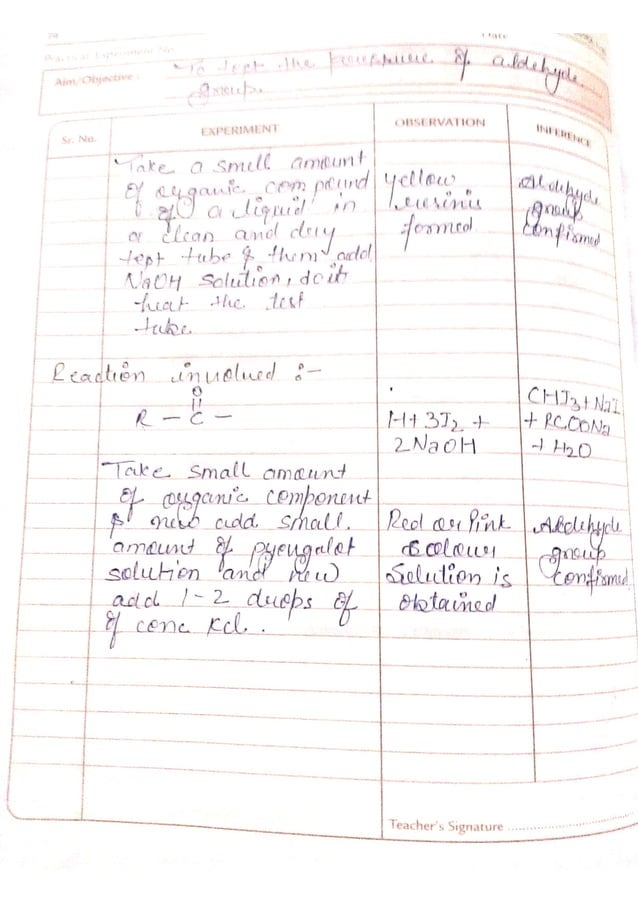 78
Date
Practical Experiment No.
Aim/Objective : To test the presence of aldehyde
group.
Sr. No. EXPERIMENT OBSERVATION INFERENCE
Take a smell amount
of organic compound
of a liquid in
a clean and dry
test tube & them add
NaOH solution, do it
heat the test
tube
yellow
formed
Aldehyde
group
confirmed
Reaction involved :-
O
||
R - C -
H + 3I2 +
2NaOH
CHI3 + NaI
+ RCOONa
+ H2O
Take small amount
of organic component
new add small.
amount of
solution and new
add 1-2 drops of
of conc Kcl.
Red or Pink
colour
Solution is
obtained
Aldehyde
group
confirmed
Teacher's Signature